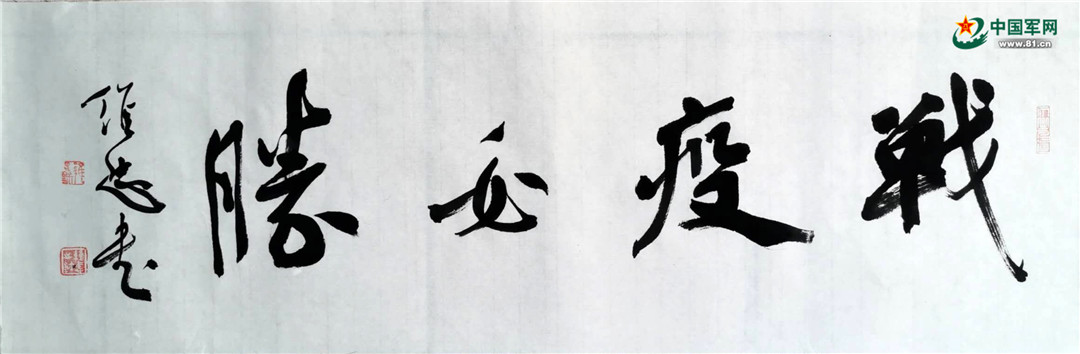 中国军网
www.81.cn
戰疫必勝
書